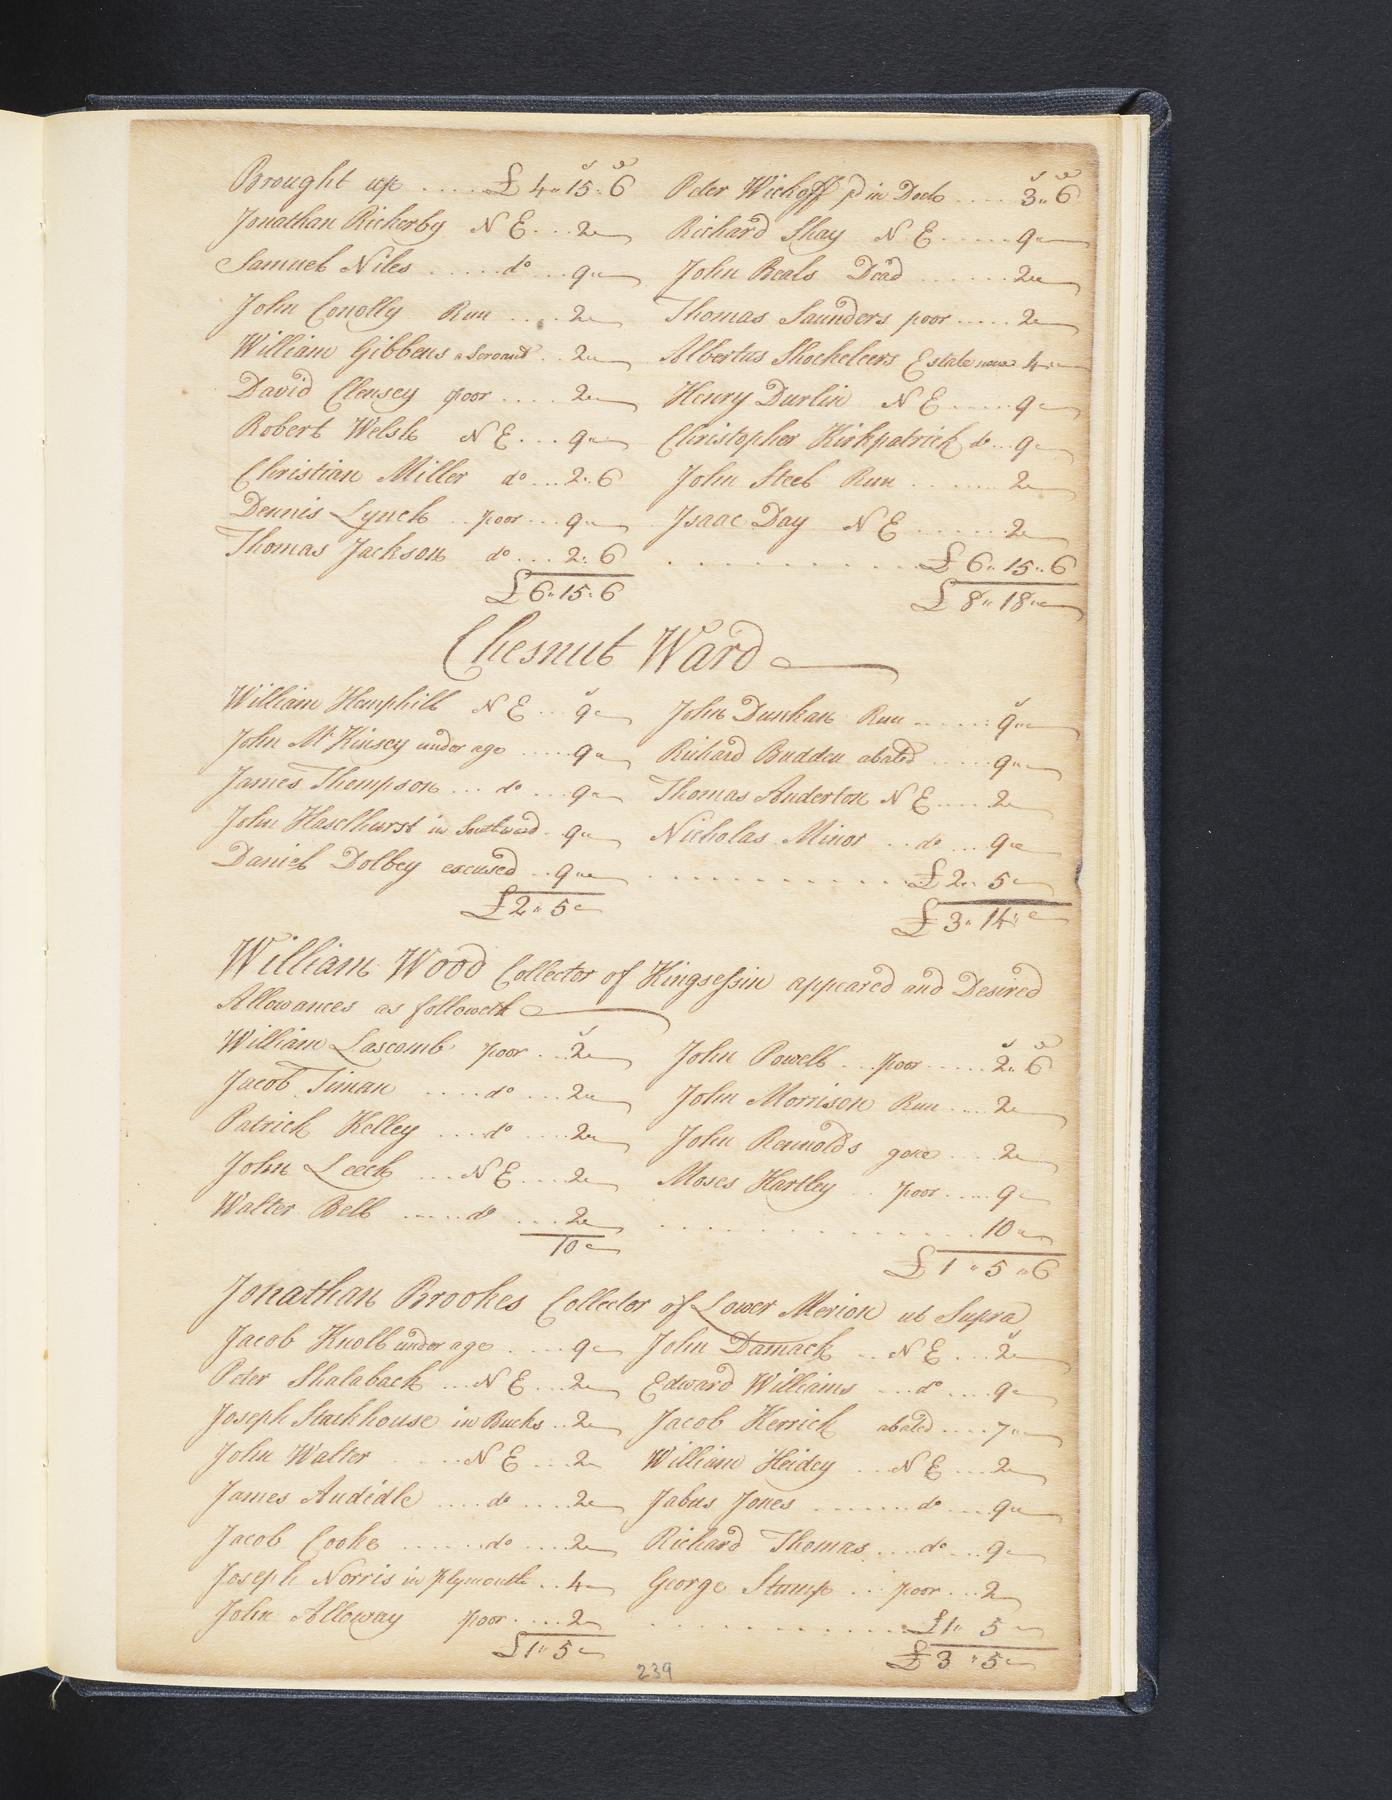 Brought up .... £ 4 " 15 " 6 Peter Wickoff pd in Dock .... 3 " 6
Jonathan Rickerby N E ... 2 " Richard Shay N E ..... 9 "
Samuel Niles ..... do ... 9 " John Beals Dead ....... 2 "
John Conolly Run .... 2 " Thomas Saunders poor ..... 2 "
William Gibbens a Servant .. 2 " Albertus Shockeleers Estate none 4 "
David Clensey poor .... 2 " Henry Durlin N E ..... 9 "
Robert Welsh N E ... 9 " Christopher Kirkpatrick do ... 9 "
Christian Miller do ... 2 " 6 John Steel Run ....... 2 "
Dennis Lynch .. poor ... 9 " Isaac Day N E ...... 2 "
Thomas Jackson do .... 2 " 6 ........... £ 6 " 15 " 6
£ 6 " 15 " 6 £ 8 " 18 "
Chesnut Ward
William Hemphill N E ... 9 " John Dunkan Run ...... 9 "
John McKinsey under age ..... 9 " Richard Budden abated ..... 9 "
James Thompson ... do ... 9 " Thomas Anderton N E .... 2 "
John Haselhurst in Southward . 9 " Nicholas Minor .. do ... 9 "
Daniel Dolbey excused .. 9 " ........... £ 2 " 5 "
£ 2 " 5 " £ 3 " 14 "
William Wood Collector of Kingsessin appeared and Desired
Allowances as followeth
William Lascomb poor ... 2 " John Powell ... poor ..... 2 " 6
Jacob Timan ..... do .... 2 " John Morrison Run .... 2 "
Patrick Kelley .... do .... 2 " John Rennolds gone .... 2 "
John Leech ... N E .... 2 " Moses Hartley .. poor ..... 9 "
Walter Bell ..... do .... 2 " ............ 10 "
10 " £ 1 " 5 " 6
Jonathan Brookes Collector of Lower Merion ut Supra
Jacob Knoll under age .... 9 " John Damack .. N E ... 2 "
Peter Shalaback ... N E ... 2 " Edward Williams ... do .... 9 "
Joseph Stackhouse in Bucks .. 2 " Jacob Herrick abated .... 7 "
John Walter ..... N E ... 2 " William Heidey ... N E ... 2 "
James Audidle .... do .... 2 " Jabus Jones ....... do ... 9 "
Jacob Cooke ...... do .... 2 " Richard Thomas .... do ... 9 "
Joseph Norris in Plymouth .. 4 " George Stamp ... poor ... 2 "
John Alloway poor .... 2 " ............ £ 1 " 5 "
£ 1 " 5 " £ 3 " 5 "
239